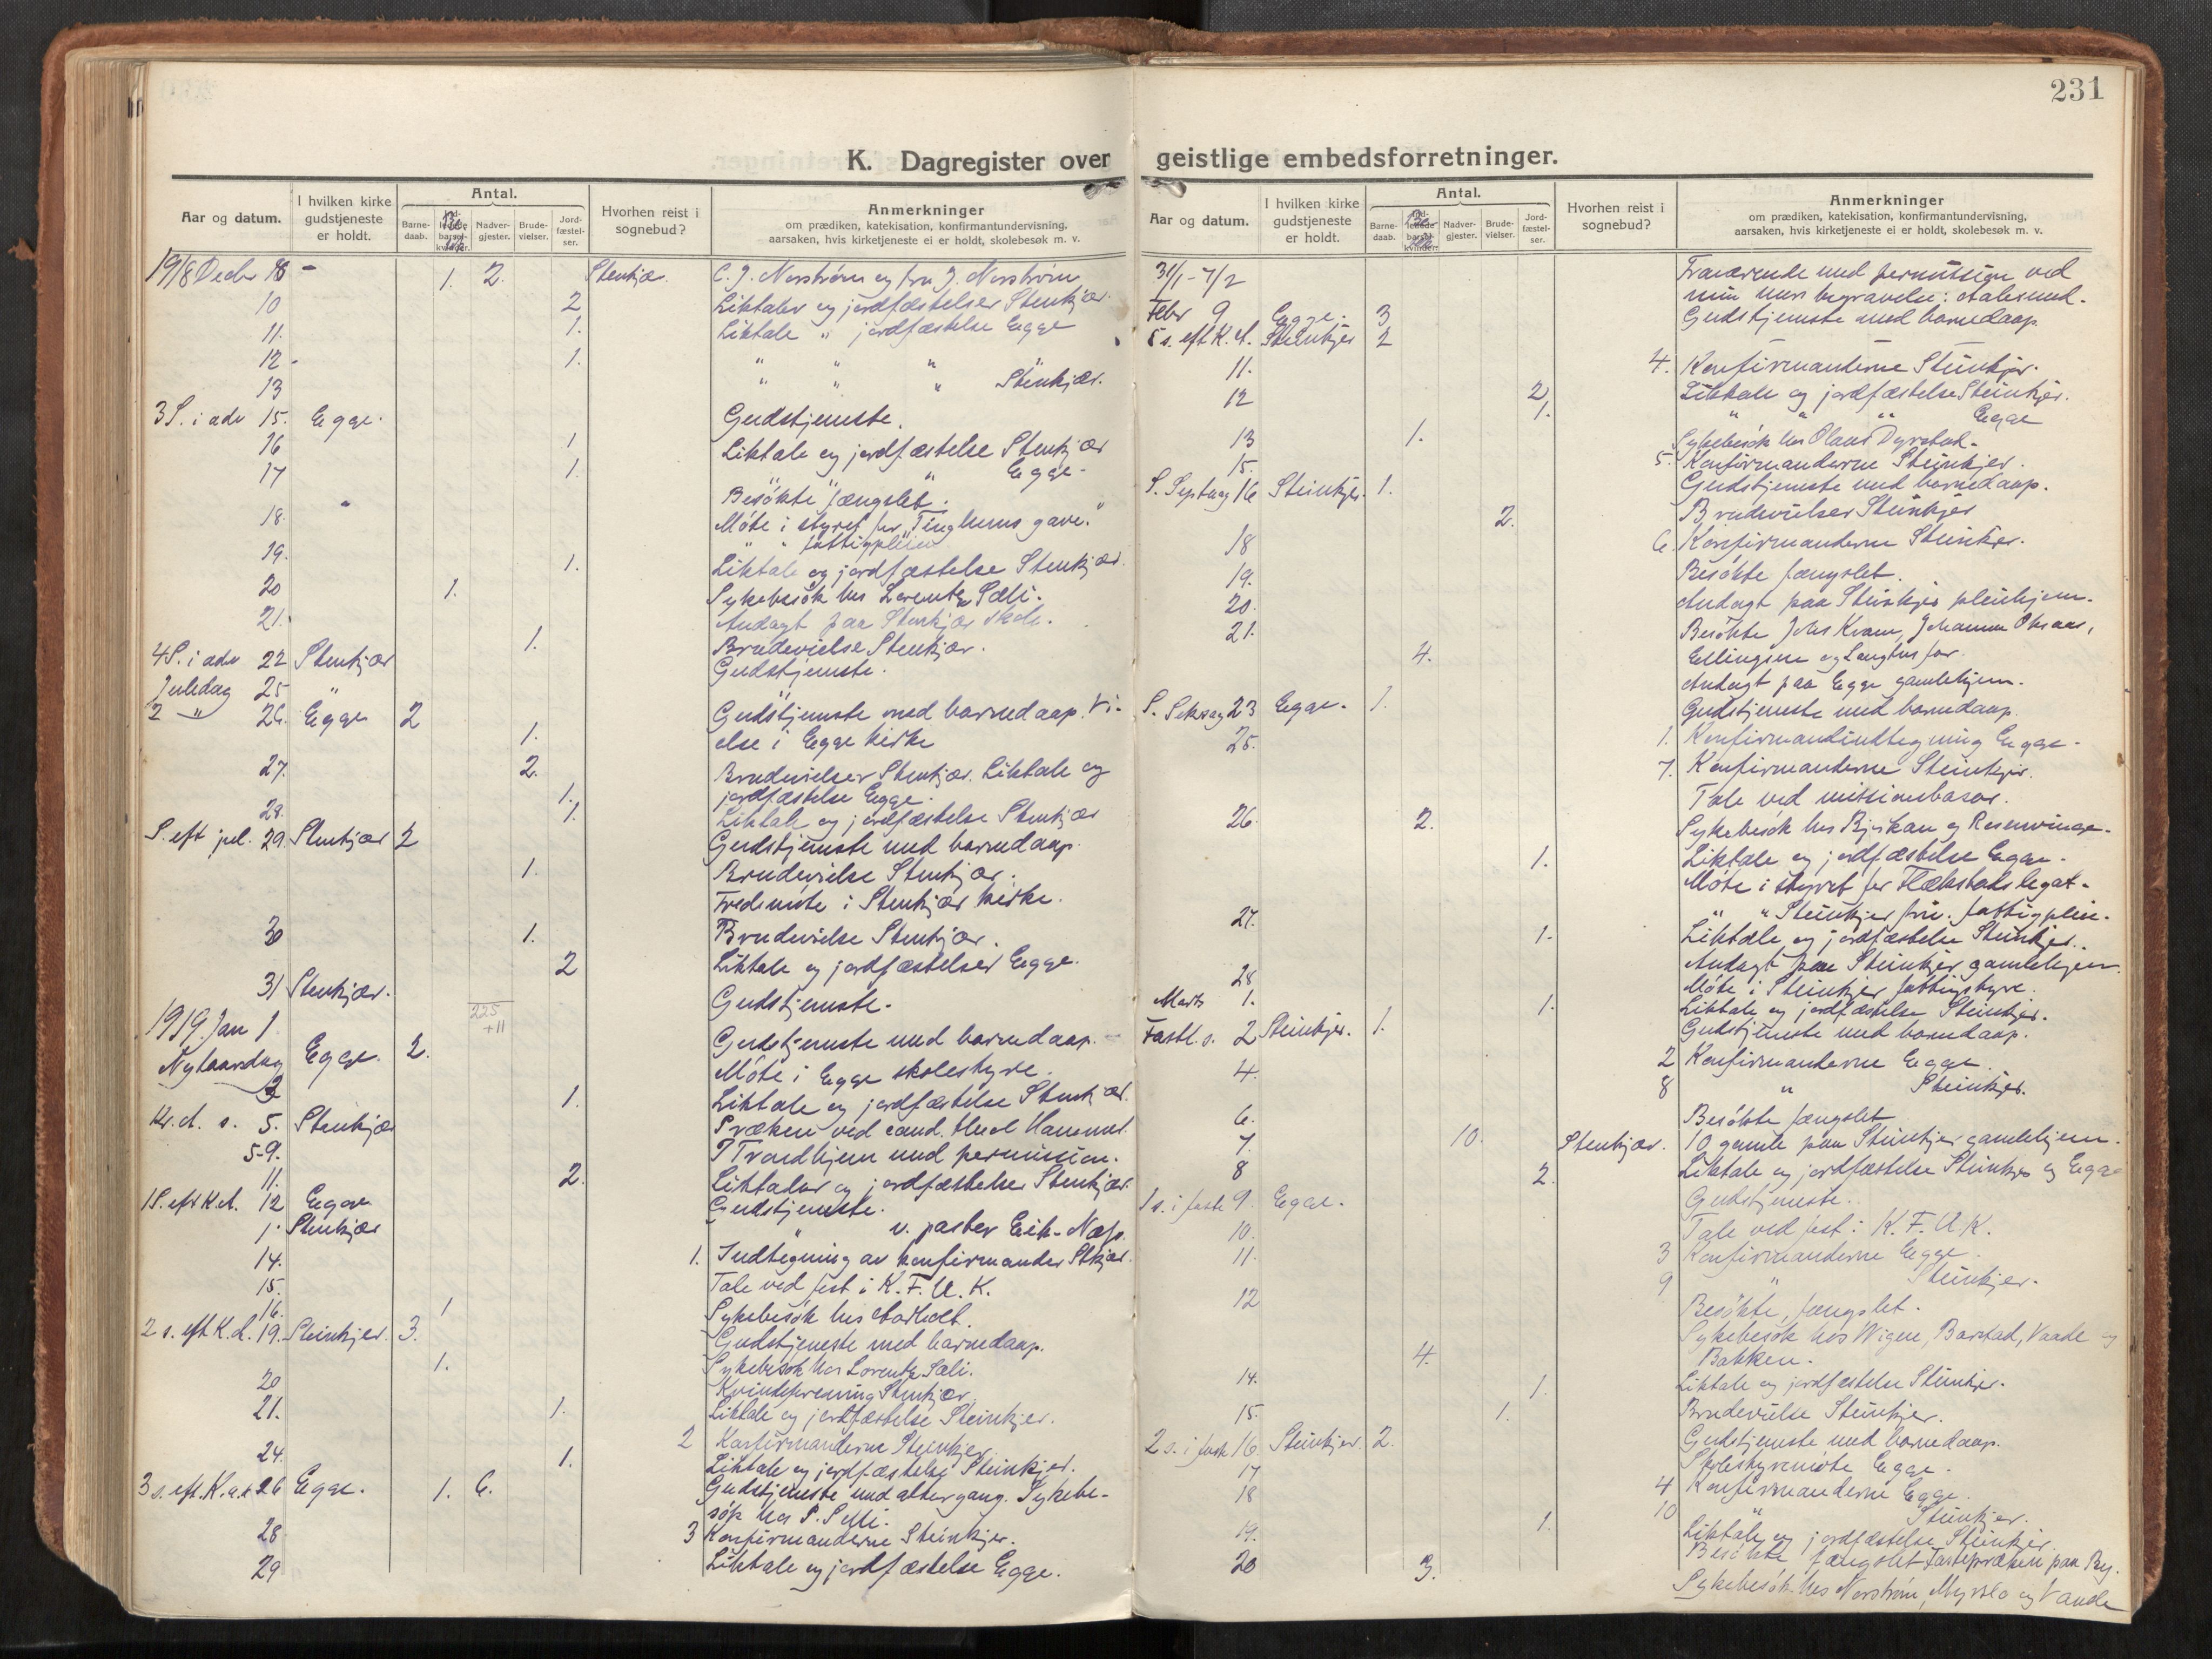 231
K. Dagregister over geistlige embedsforretninger.
Aar og datum. I hvilken kirke gudstjeneste er holdt. Antal. Barnedaab. Nadvergjester. Brudevielser. Jordfæstelser. Hvorhen reist i sognebud? Anmerkninger om prædiken, katekisation, konfirmantundervisning, aarsaken, hvis kirketjeneste ei er holdt, skolebesøk m. v.
1918 Decbr - 1. 2. Stenkjær. C. J. Norstrøm og fru J. Norstrøm
10 2 Liktaler og jordfæstelser Stenkjær.
11. 1. Liktale " jordfæstelse Egge
12 - 1. " " " "
13 " " " Stenkjær.
3 S. i adv 15. Egge. Gudstjeneste.
16 1 Liktale og jordfæstelse Stenkjær
17 1. " " Egge.
Besøkte fængslet.
18. Møte i styret for "Tinghuus gave."
" " fattigpleien
19. 1. Liktale og jordfæstelse Stenkjær.
20 1. Sykebesøk hos Lorentz Sæli.
21. Andagt paa Stenkjær skole.
1. Brudevielse Stenkjær.
4 S. i adv 22 Stenkjær Gudstjeneste.
Juledag 25 " "
2 " 26. Egge 2 Gudstjeneste med barnedaap. Vi-
1. else i Egge kirke
27. 2. Brudevielser Stenkjær. Liktale og
1. jordfæstelse Egge.
28. 1. Liktale og jordfæstelse Stenkjær
S. eft jul. 29. Stenkjær 2 Gudstjeneste med barnedaap.
1. Brudevielse Stenkjær.
Fredsmøte i Stenkjær kirke.
30 1. Brudevielse Stenkjær.
2 Liktale og jordfæstelser Egge.
31 Stenkjær. Gudstjeneste.
225
+11
1919. Jan 1
Nytaarsdag Egge. 2. Gudstjeneste med barnedaap.
Møte i Egge skolestyre.
1. Liktale og jordfæstelse Stenkjær.
Kr. Å. s. 5. Stenkjær Præken ved cand. theol Hammer.
5-9. I Trondhjem med permission.
11. 2. Liktaler og jordfæstelser Stenkjær.
1 S. eft K. Å. 12 Egge Gudstjeneste.
" Stenkjær " v. pastor Eik-Næss.
14. 1. Indtegning av konfirmander Stkjær.
15. Tale ved fest i K. F. U. K.
16. 1 Sykebesøk hos
2 s. eft K. Å. 19. Steinkjer 3. Gudstjeneste med barnedaap.
1. Sykebesøk hos Lorentz Sæli.
20 Kvindeforening Stenkjær
21. 1. Liktale og jordfæstelse Steinkjer.
2 Konfirmanderne Steinkjer
24. 1. Liktale og jordfæstelse Steinkjer.
3 s. eft. K. Å. 26 Egge. 1. 6. Gudstjeneste med altergang. Sykebe-
søk hos
28 3 Konfirmanderne Steinkjer.
29 Liktale og jordfæstelse Egge.
Aar og datum. I hvilken kirke gudstjeneste er holdt. Antal. Barnedaab. Nadvergjester. Brudevielser. Jordfæstelser. Hvorhen reist i sognebud? Anmerkninger om prædiken, katekisation, konfirmantundervisning, aarsaken, hvis kirketjeneste ei er holdt, skolebesøk m. v.
31/1 - 7/2 Fraværende med permission ved
min mors begravelse:
Febr 9 Egge. 3 Gudstjeneste med barnedaap
5 s. eft K. Å. Steinkjer 2
11. 4. Konfirmanderne Steinkjer.
12 2 Liktale og jordfæstelse Steinkjer.
1. " " " Egge
13 1. Sykebesøk hos Olaus Dyrstad.
15. 5. Konfirmanderne Steinkjer.
S. Septuag 16 Steinkjer. 1. Gudstjeneste med barnedaap.
2. Brudevielser Steinkjer
18 6. Konfirmanderne Steinkjer.
19. Besøkte fængslet.
20. Andagt paa Steinkjer pleiehjem.
21. Besøkte Johs Kvam, Johanne
4. Ellingsen og
Andagt paa Egge gamlehjem.
S. Seksag 23 Egge. 1. Gudstjeneste med barnedaap.
25. 1. Konfirmandindtegning Egge.
7. Konfirmanderne Steinkjer.
Tale ved missionsbasar.
26 2. Sykebesøk hos Bjørkan og Rosenvinge.
1. Liktale og jordfæstelse Egge.
Møte i styret for legat.
" " Steinkjer friv. fattigpleie.
27. 1. Liktale og jordfæstelse Steinkjer.
Andagt paa Steinkjer gamlehjem.
28 Møte i Steinkjer fattigstyre.
Marts 1. 1. Liktale og jordfæstelse Steinkjer.
Fastl. s. 2 Steinkjer. 1. Gudstjeneste med barnedaap.
4. 2 Konfirmanderne Egge
8 " Steinkjer.
6. Besøkte fængslet
7. 10. Stenkjær. 10 gamle paa Steinkjer gamlehjem.
8 2. Liktale og jordfæstelse Steinkjer og Egge
1 s. i faste 9. Egge. Gudstjeneste.
10. Tale ved fest i K. F. U. K.
11. 3 Konfirmanderne Egge.
9 " Steinkjer.
12 Besøkte fængslet.
Sykebesøk hos Wigen, Barstad, Vaade og
4. Bakken.
14. 1. Liktale og jordfæstelse Steinkjer.
15. 1. Brudevielse Steinkjer.
2 s. i faste 16. Steinkjer. 2. Gudstjeneste med barnedaap.
17 Skolestyremøte Egge.
18 4 Konfirmanderne Egge.
10 " Steinkjer.
19. 1. Liktale og jordfæstelse Steinkjer.
20 Besøkte fængslet. Fastepræken paa Beg.
3. Sykebesøk hos Norstrøm, og Vaade